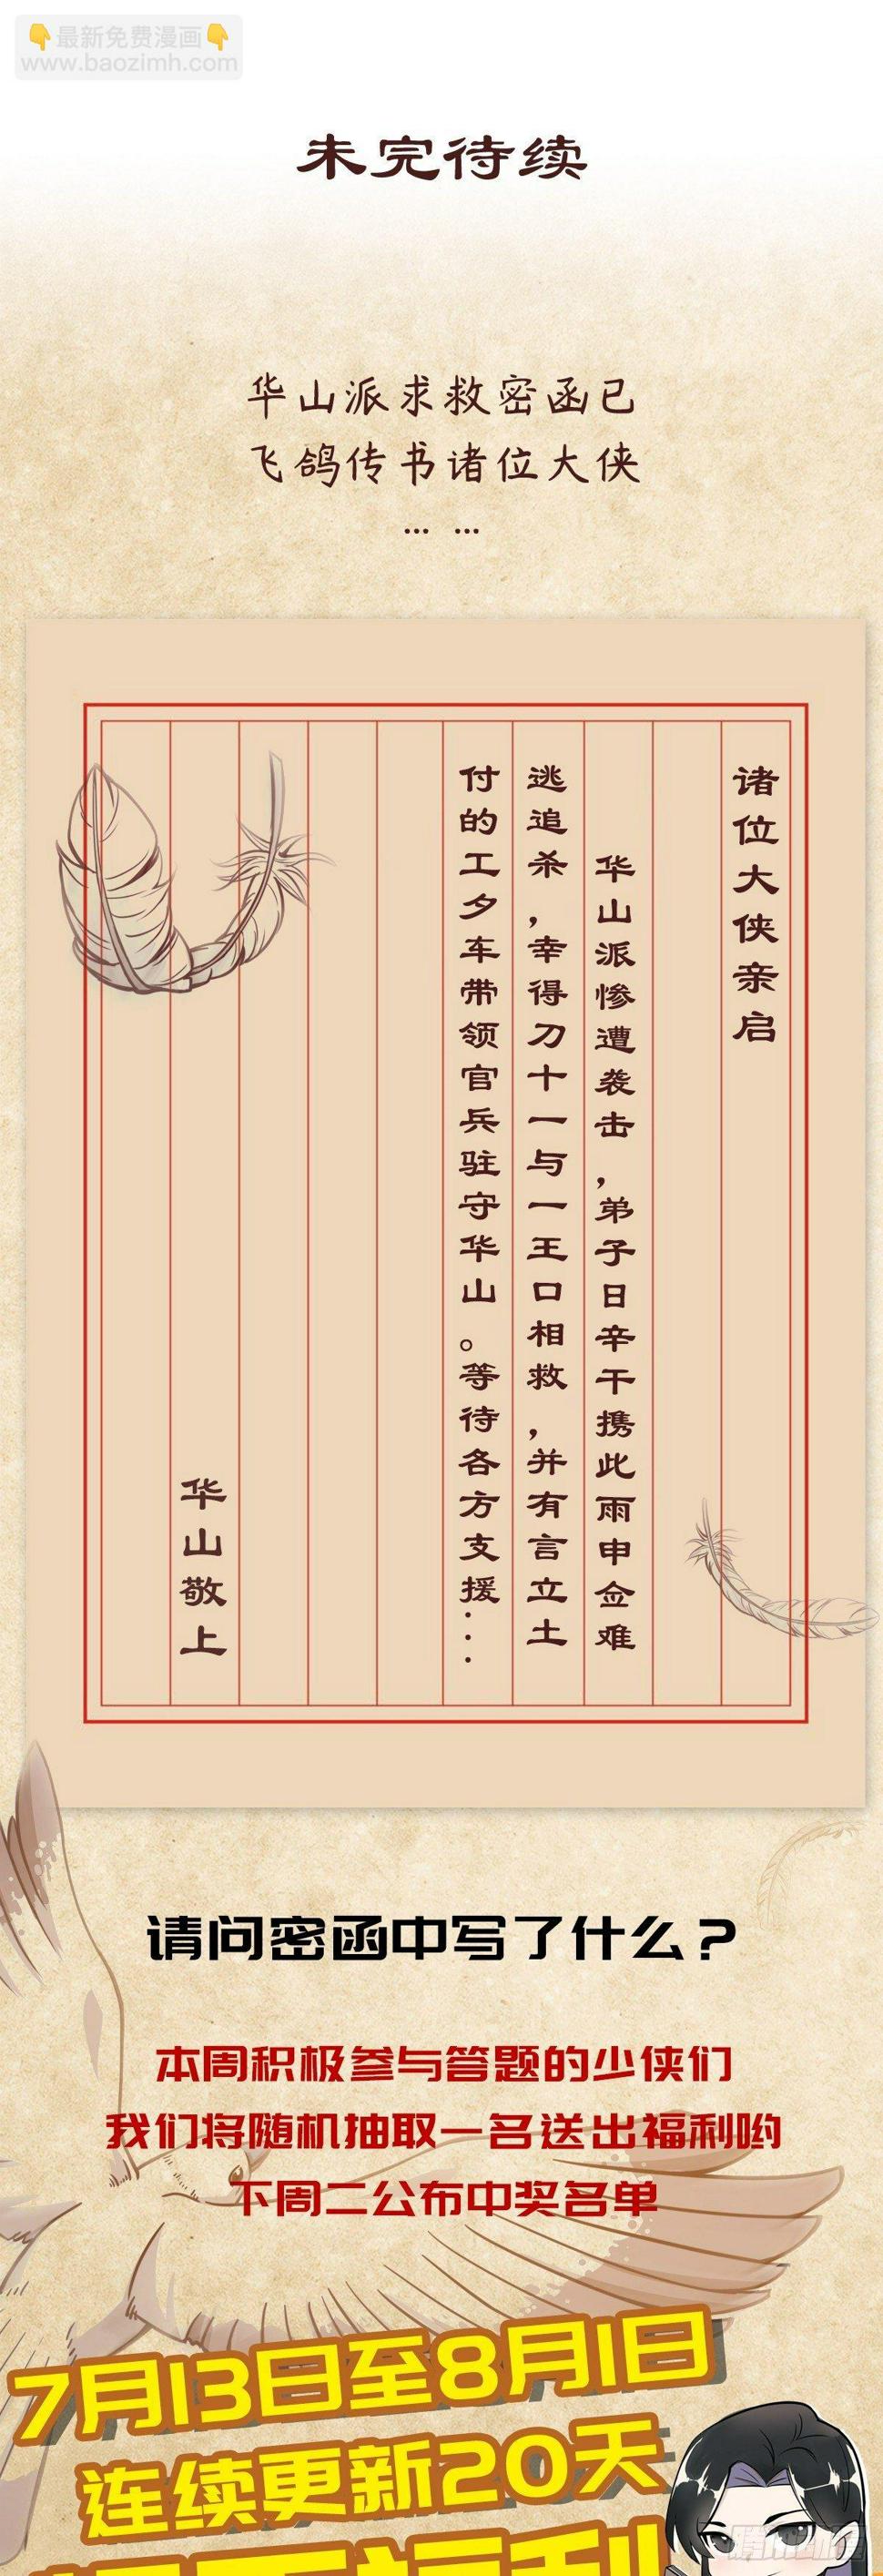 👇最新免费漫画👇
www.baozimh.com
未完待续
华山派求救密函已
飞鸽传书诸位大侠
... ...
诸位大侠亲启
华山派惨遭袭击，弟子日辛干携此雨申佥难
逃追杀，幸得刀十一与一王口相救，并有言立土
付的工夕车带领官兵驻守华山。等待各方支援...
华山敬上
请问密函中写了什么？
本周积极参与答题的少侠们
我们将随机抽取一名送出福利哟
下周二公布中奖名单
7月13日至8月1日
连续更新20天
腾讯动漫